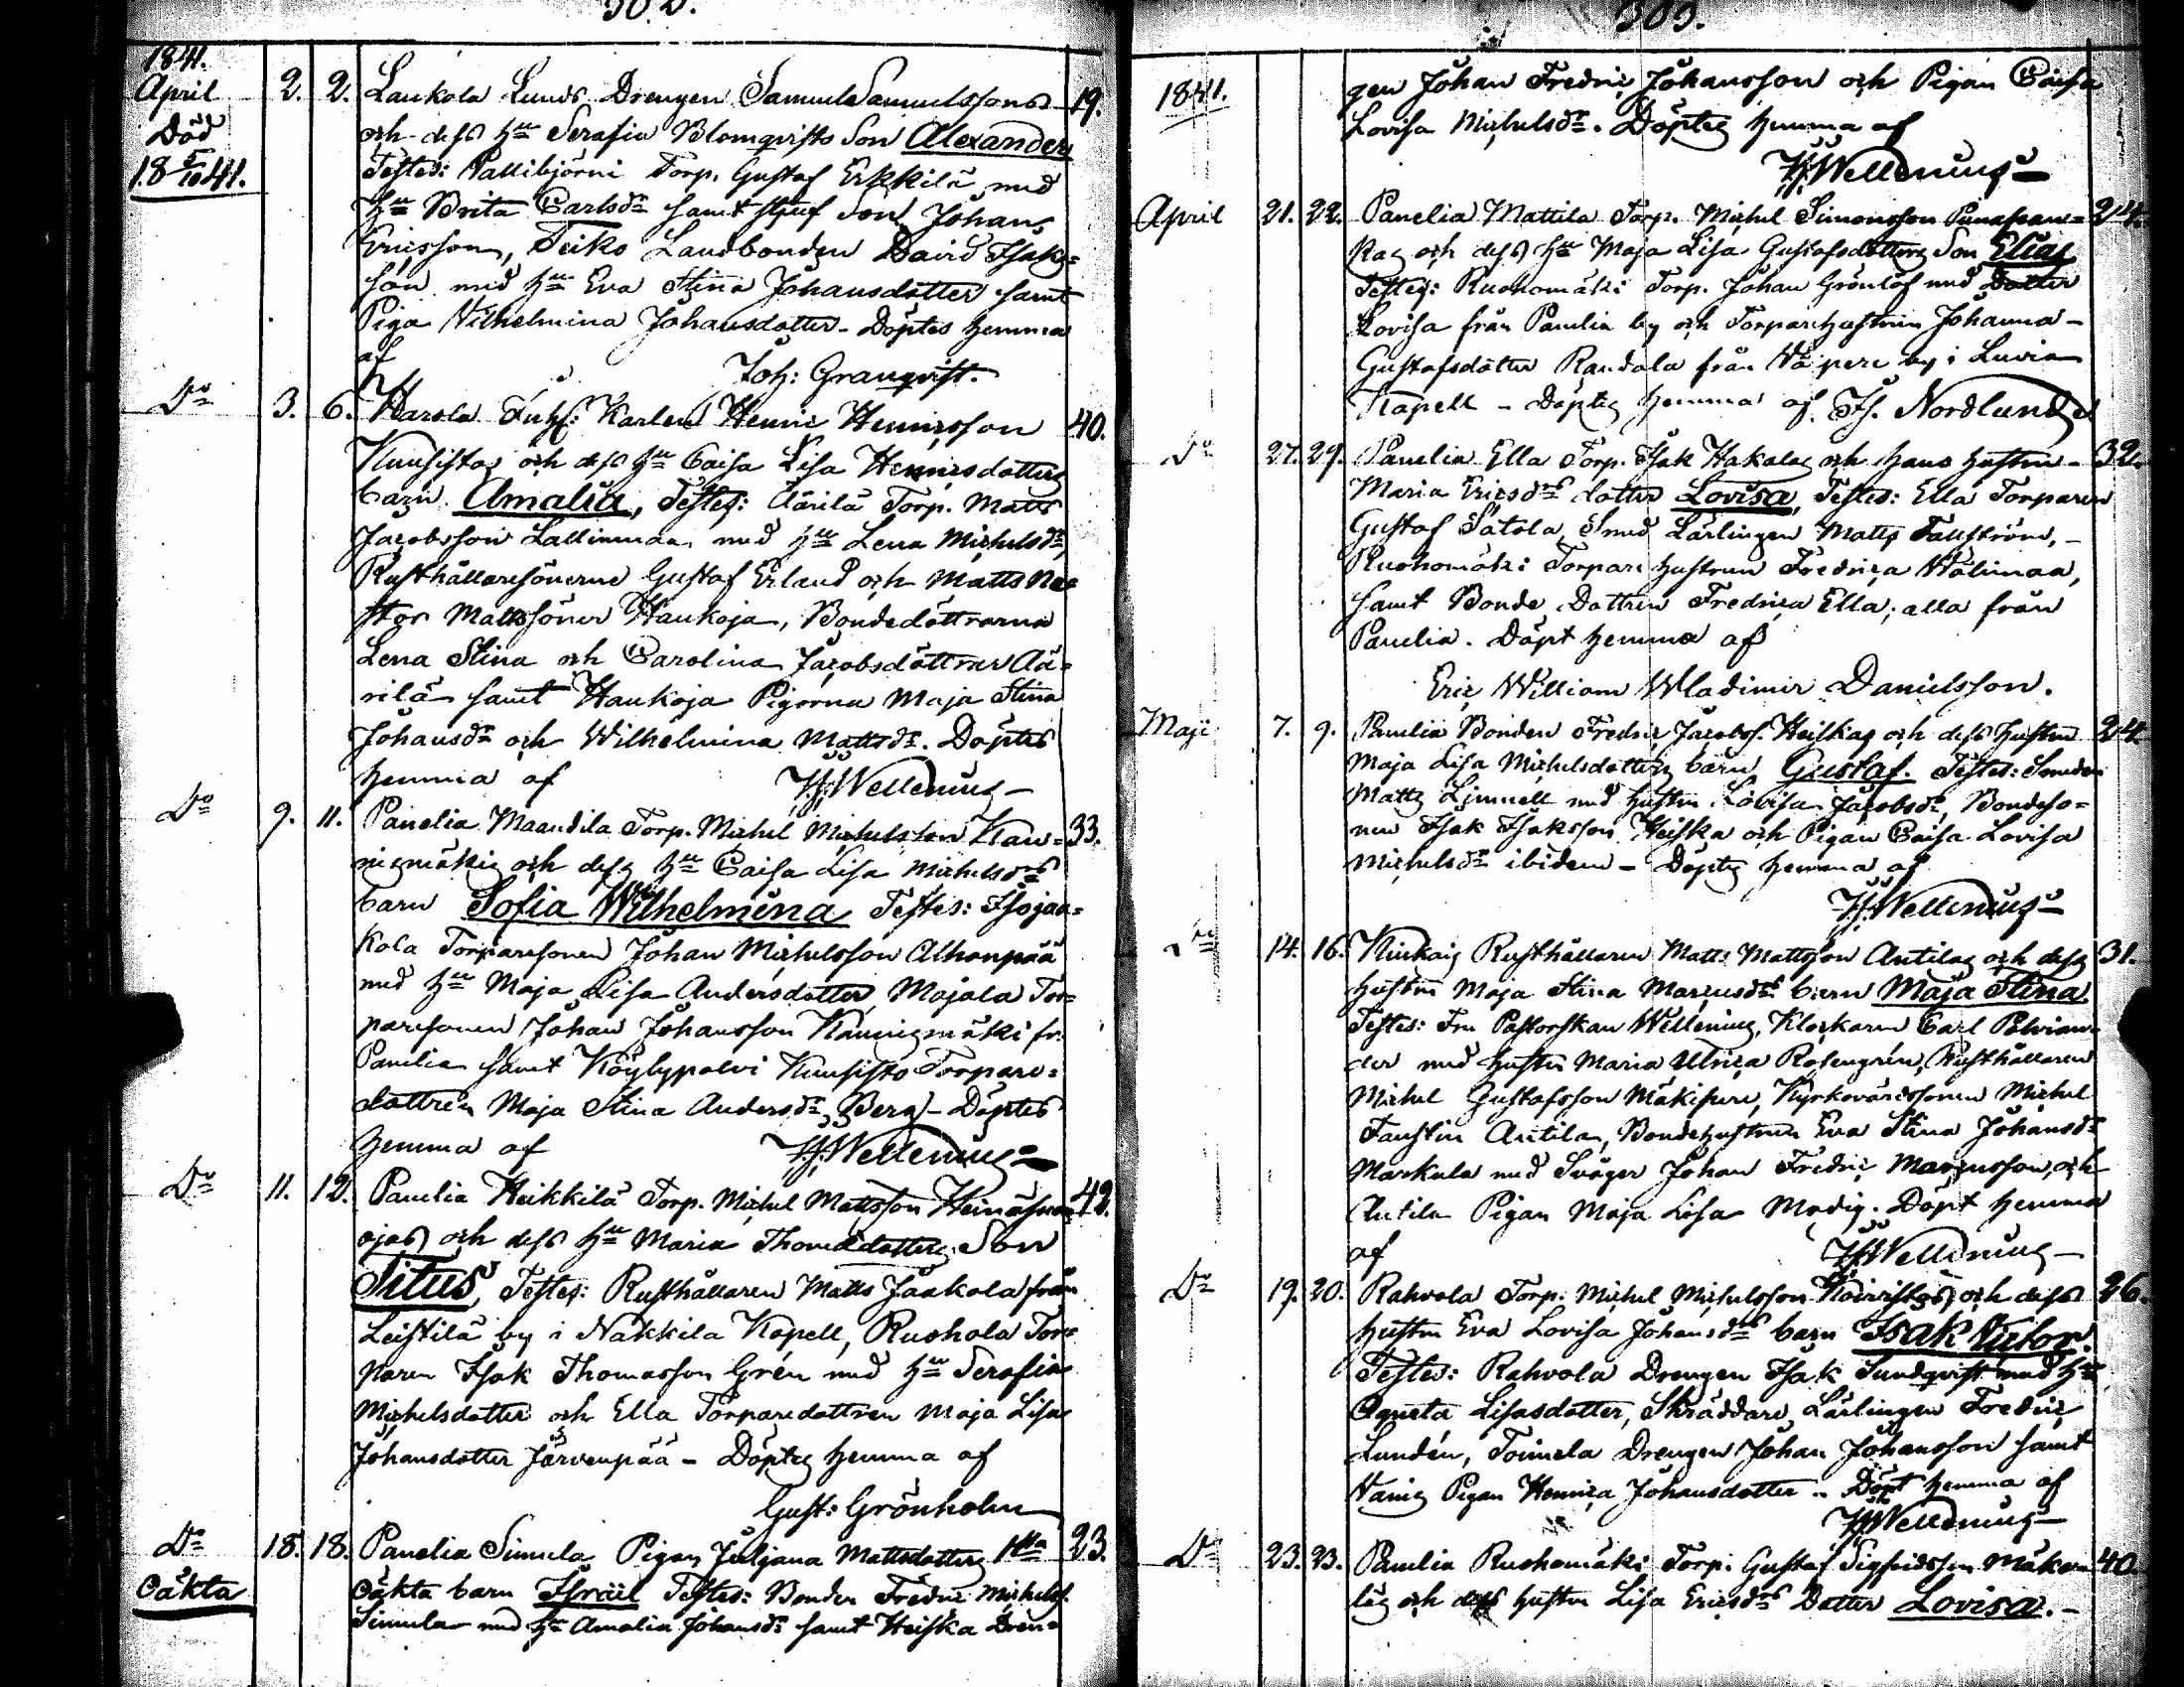 302.
1841.
April 2. 2. Laukola Lunds Drengen Samuel Samuelssons 19.
Död och dess Hu Serafia Blomqvists Son Alexander
18 5/10 41. Testes: Pallibjörni Torp. Gustaf Erkkilä med
Hu Brita Carlsdr samt stjuf Son Johan
Ericsson, Teiko Landbonden David Isaks=
son med Hu Eva Stina Johansdotter samt
Piga Vilhelmina Johansdotter - Döptes hemma
af Joh: Granqvist.
Do 3. 6. Harola Karlen Henric Henricsson 40.
Kuusistos och dess Hu Caisa Lisa Henricsdotters
barn Amalia, Testes: Äärilä Torp. Matts
Jacobsson Lallinmaa med Hu Lena Michelsdr,
Rusthållaresönerne Gustaf Erland och Matts Ne=
stor Mattssöner Haukoja, Bondedöttrarna
Lena Stina och Carolina Jacobsdöttrar Ää=
rilä samt Haukoja Pigorna Maja Stina
Johansdr och Wilhelmina Mattsdr. Döptes
hemma af Wellenius
Do 9. 11. Panelia Maandila Torp. Michel Michelsson Kau= 33.
nismäkis och dess Hu Caisa Lisa Michelsdrs
barn Sofia Wilhelmina Testes: Isojaa=
kola Torparesonen Johan Michelsson Alhonpää
med Hu Maja Lisa Andersdotter, Majala Tor=
paresonen Johan Johansson Kaunismäki fr.
Panelia samt Köylypolvi Kuusisto Torpare=
dottren Maja Stina Andersdr Berg - Döptes
hemma af Wellenius
Do 11. 12. Panelia Heikkilä Torp. Michel Mattsson 42.
ojas och dess Hu Maria Thomædotters Son
Titus, Testes: Rusthållaren Matts Jaakola från
Leistilä by i Nakkila Kapell, Ruohola Tor=
paren Isak Thomasson Grén med Hu Serafia
Michelsdotter och Ella Torparedottren Maja Lisa
Johansdotter Järvenpää - Döptes hemma af
Gust: Grönholm
Do 18. 18. Panelia Simula Pigan Juljana Mattsdotters 1sta 23.
Oäkta Oäkta barn Israel Testes: Bonden Fredric Michelss.
Simula med Hu Amalia Johansdr samt Heiska Dren=
303.
1841. gen Johan Fredric Johansson och Pigan Caisa
Lovisa Michelsdr. Döptes hemma af
Wellenius
April 21. 22. Panelia Mattila Torp. Michel Simonsson 24.
kas och dess Hu Maja Lisa Gustafsdotters Son Elias
Testes: Ruohomäki Torp. Johan Grönlöf med Dotter
Lovisa från Panelia by och Torparehustrun Johanna
Gustafsdotter Randala från by i Luvia
Kapell - Döptes hemma af Nordlund
Do 27. 29. Panelia Ella Torp. Isak Hakalas och hans hustru 32.
Maria Ericsdrs dotter Lovisa, Testes: Ella Torparen
Gustaf Satola, Smed Lärlingen Matts Fallström,
Ruohomäki Torpare hustrun Fredrica Wälimaa,
samt Bonde Dottren Fredrica Ella; alla från
Panelia. Döpt hemma af
Eric William Wladimir Danielsson.
Maji 7. 9. Panelia Bonden Fredric Jacobss. Heiskas och dess hustru 24.
Maja Lisa Michelsdotters barn Gustaf. Testes: Smeden
Matts Limnell med hustru Lovisa Jacobsdr, Bondeso=
nen Isak Isaksson Heiska och Pigan Caisa Lovisa
Michelsdr ibidem - Döptes hemma af
Wellenius
Do 14. 16. Kiukais Rusthållaren Matts Mattsson Antilas och dess 31.
hustru Maja Stina Marcusdrs barn Maja Stina.
Testes: Fru Pastorskan Wellenius, Klockaren Carl Polvian=
der med hustru Maria Ulrica Rosengrén, Rusthållaren
Michel Gustafsson Mäkipere, Kyrkovärdssonen Michel
Faustin Antila, Bondehustrun Eva Stina Johansdr
Markula med Svåger Johan Fredric Marcusson, och
Antila Pigan Maja Lisa Modig. Döpt hemma
af Wellenius
Do 19. 20. Rahvola Torp. Michel Michelsson Koivistos och dess 26.
hustru Eva Lovisa Johansdrs barn Isak Victor.
Testes: Rahvola Drengen Isak Sundqvist med Hu
Agneta Lisasdotter, Skräddare Lärlingen Fredric
Lundén, Toimela Drengen Johan Johansson samt
Vanis Pigan Henrica Johansdotter - Döpt hemma af
Wellenius
Do 23. 23. Panelia Ruohomäki Torp. Gustaf Sigfridsson Mäken= 40.
läs och dess hustru Lisa Ericsdrs Dotter Lovisa. -